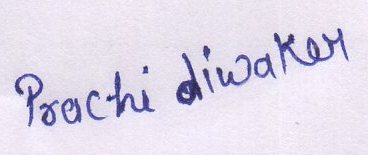 Prachi diwaker